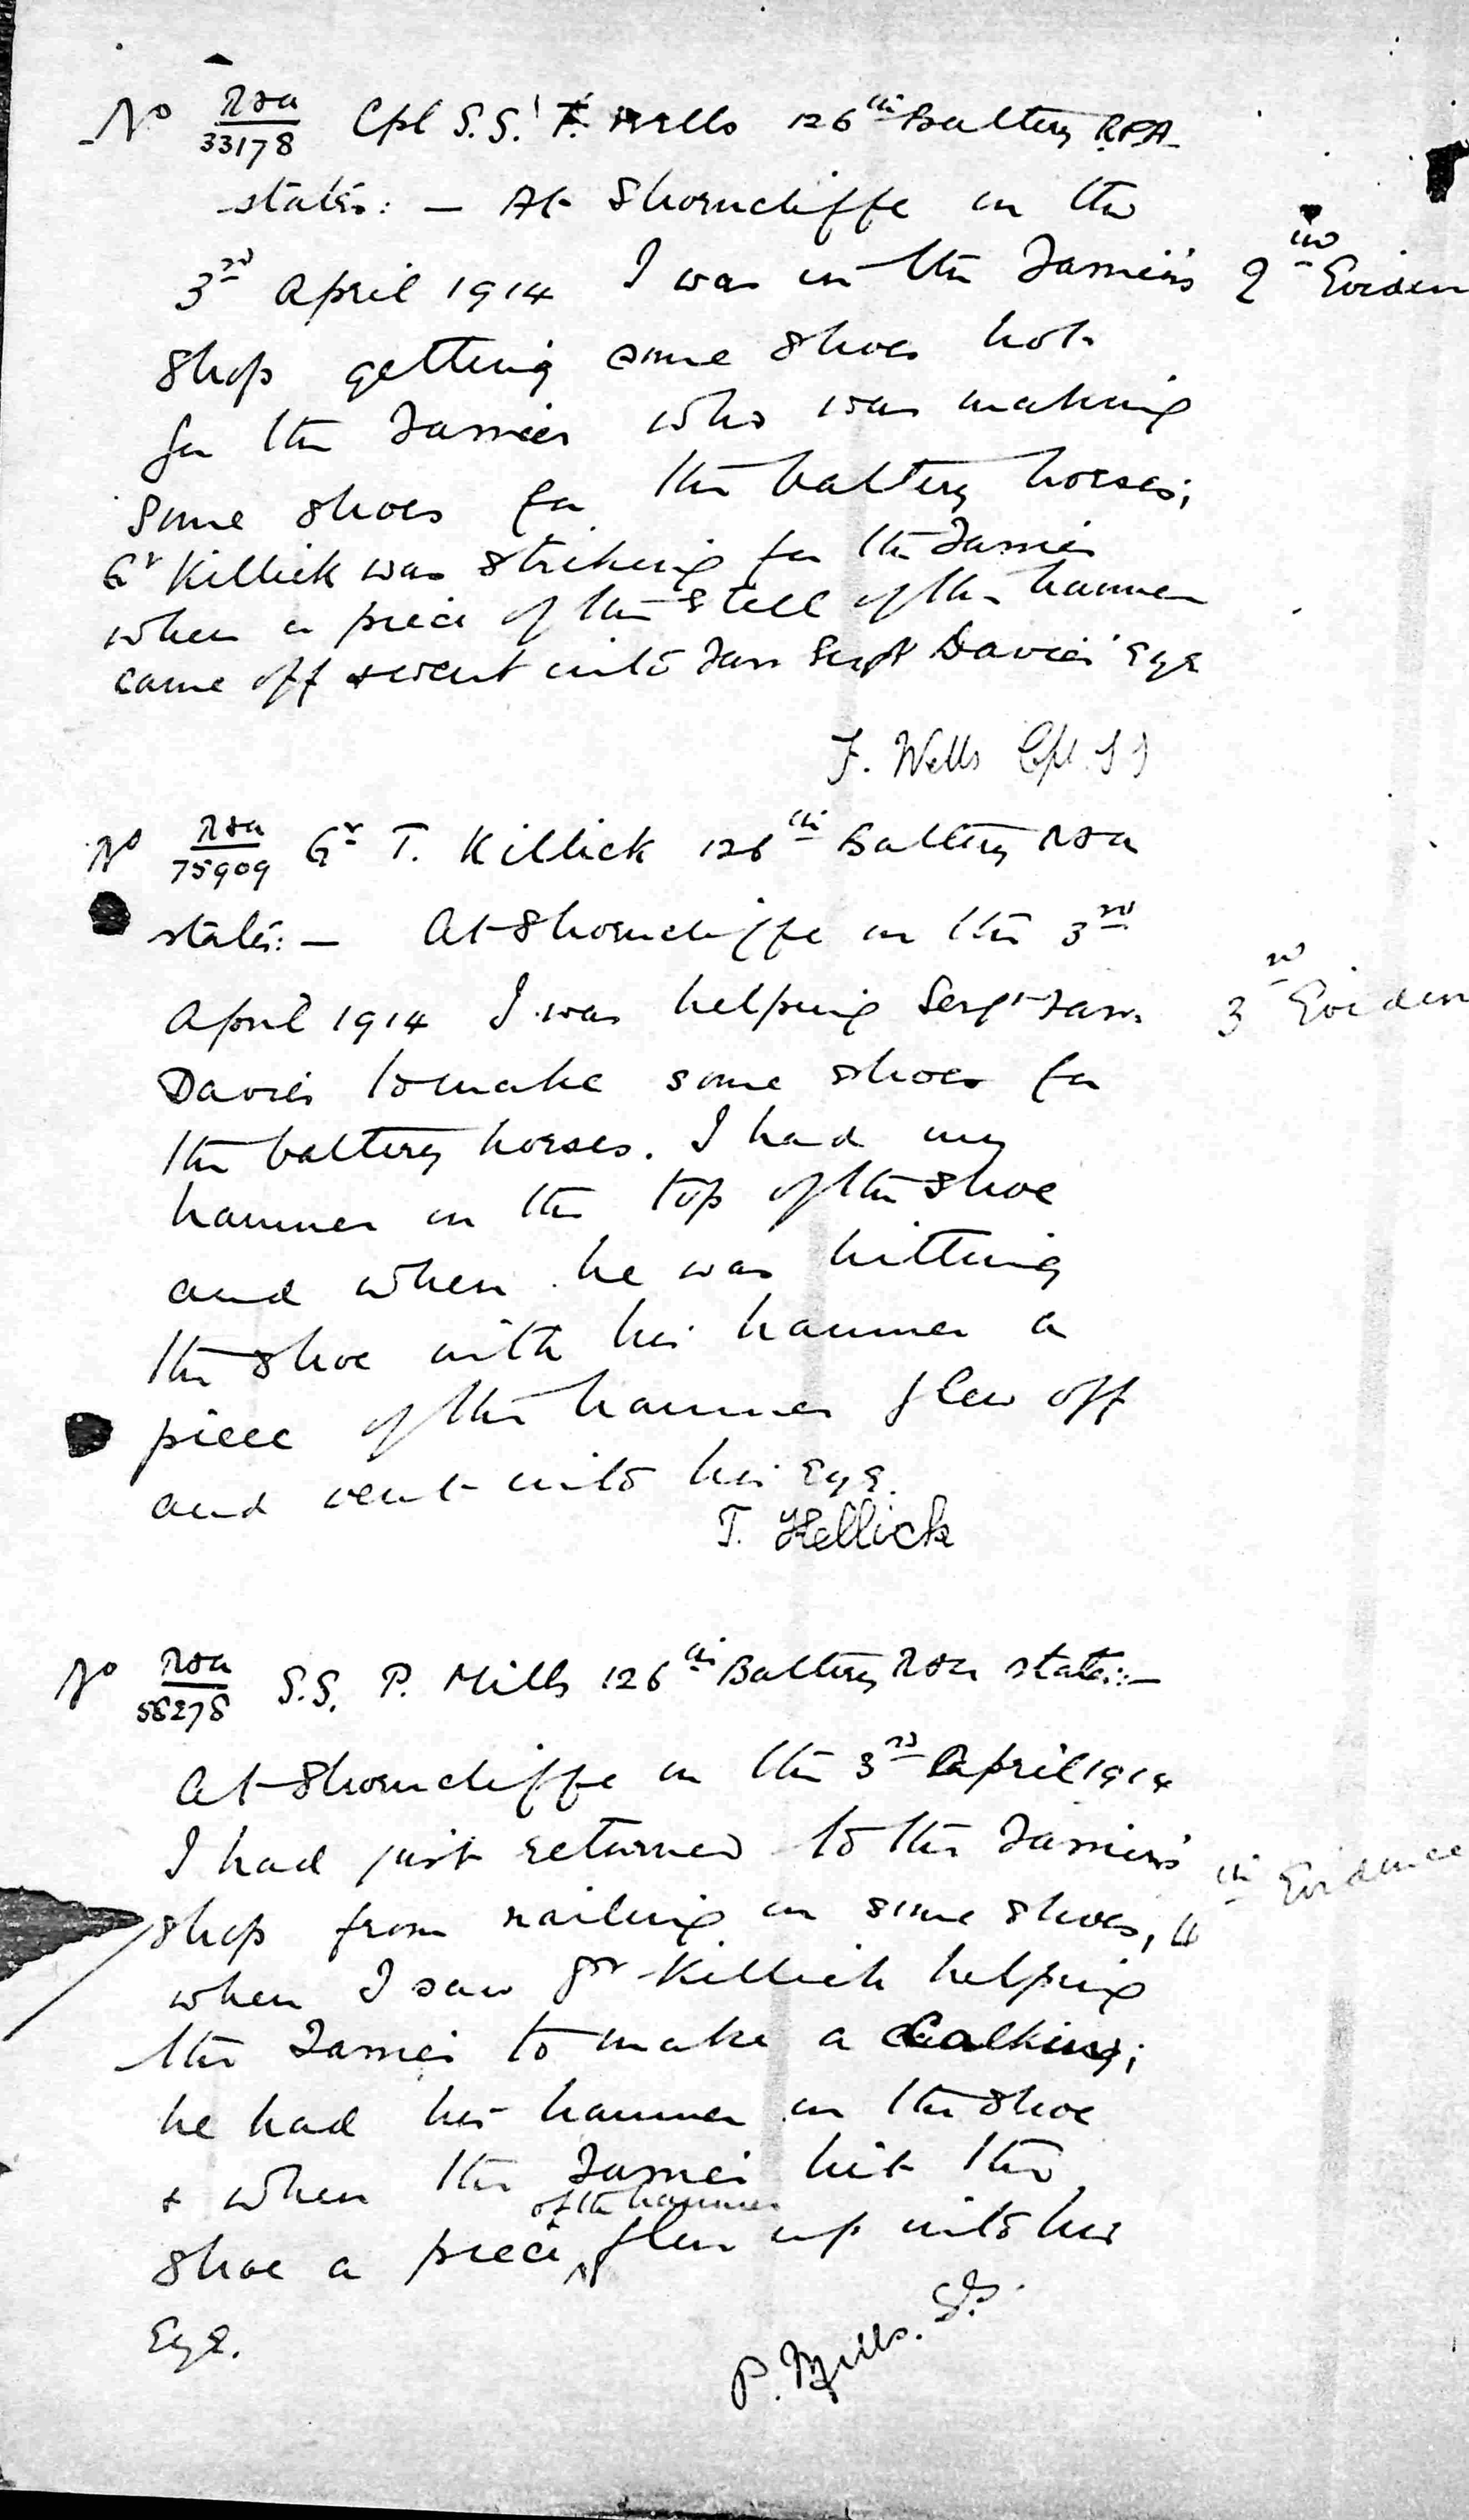 No RFA/33178 Cpl S.S. F. Wells 126th Battery RFA
states: — At Shorncliffe on the
3rd April 1914 I was in the Farrier's
2nd Eviden
shop getting some shoes hot
for the Farrier who was making
some shoes for the battery horses;
Gr Killick was striking for the Farrier
when a piece of the steel of the hammer
came off & went into Farr Sergt Davies' Eye
F. Wells Cpl. SS
No RFA/75909 Gr T. Killick 126th Battery RFA
states: — At Shorncliffe on the 3rd
April 1914 I was helping Sergt Farr.
3rd Eviden
Davies to make some shoes for
the battery horses. I had my
hammer on the top of the shoe
and when he was hitting
the shoe with his hammer a
piece of the hammer flew off
and went into his Eye.
T. Killick
No RFA/58278 S.S. P. Mills 126th Battery RFA states:—
At Shorncliffe on the 3rd April 1914
I had just returned to the Farrier's
shop from nailing on some shoes,
4th Evidence
when I saw Gr Killick helping
the Farrier to make a Calking;
he had his hammer on the shoe
& when the Farrier hit the
shoe a piece of the hammer flew up into his
Eye.
P. Mills. SS.